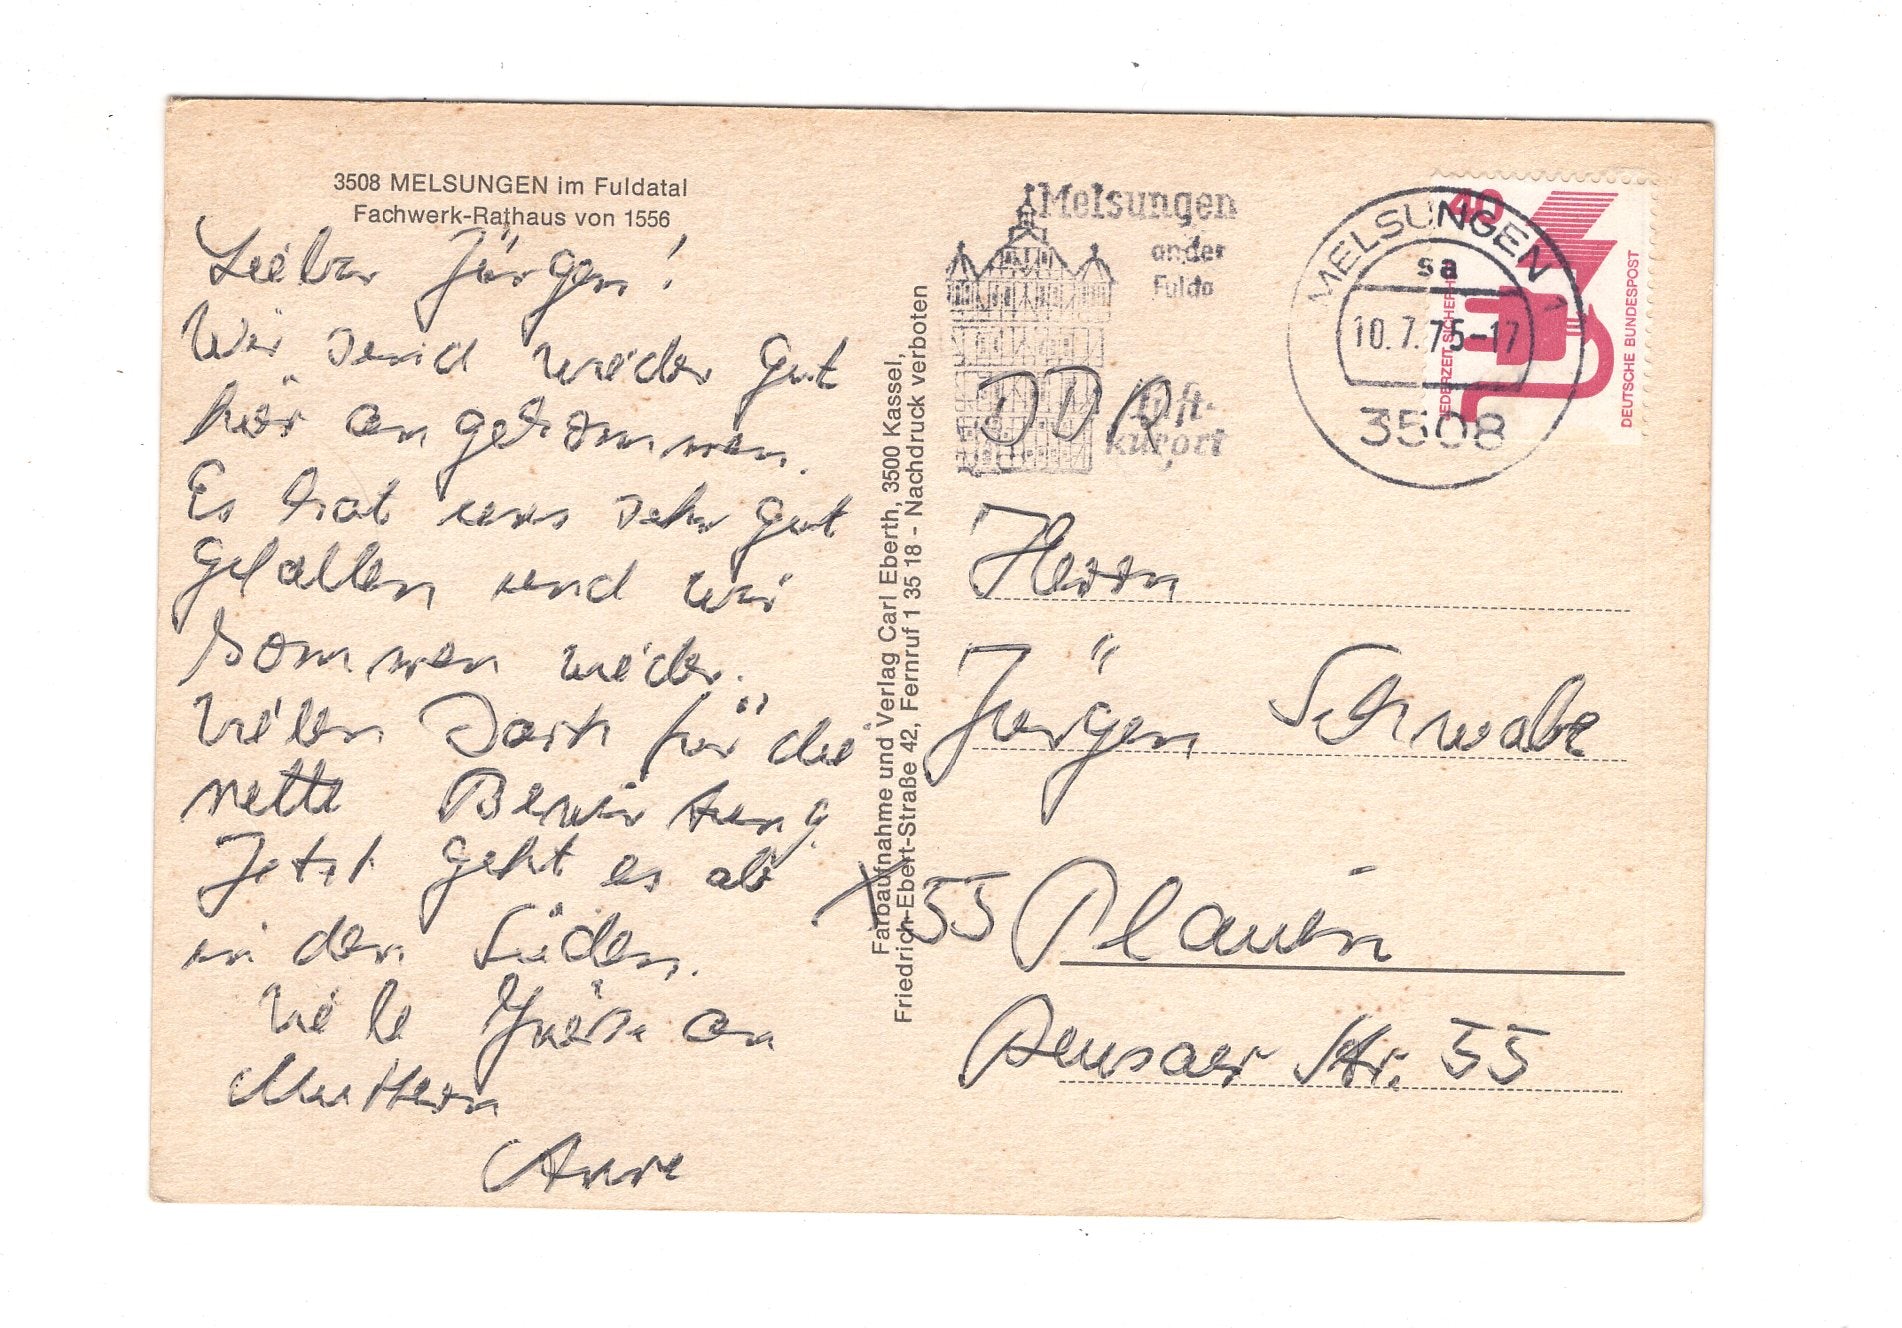 3508 MELSUNGEN im Fuldatal
Fachwerk-Rathaus von 1556
Lieber Jürgen!
Wir sind wieder gut
hier angekommen.
Es hat uns sehr gut
gefallen und wir
kommen wieder.
Vielen Dank für die
nette Bewirtung.
Jetzt geht es ab
in den Süden.
Viele Grüße an
Muttern
Anne
Farbaufnahme und Verlag Carl Eberth, 3500 Kassel,
Friedrich-Ebert-Straße 42, Fernruf 1 35 18 - Nachdruck verboten
Melsungen
an der
Fulda
Luft-
kurort
MELSUNGEN 1
sa
10.7.75-17
3508
40
JEDERZEIT SICHERHEIT
DEUTSCHE BUNDESPOST
DDR
Herrn
Jürgen Schwabe
X 55 Plauen
Reusaer Str. 55